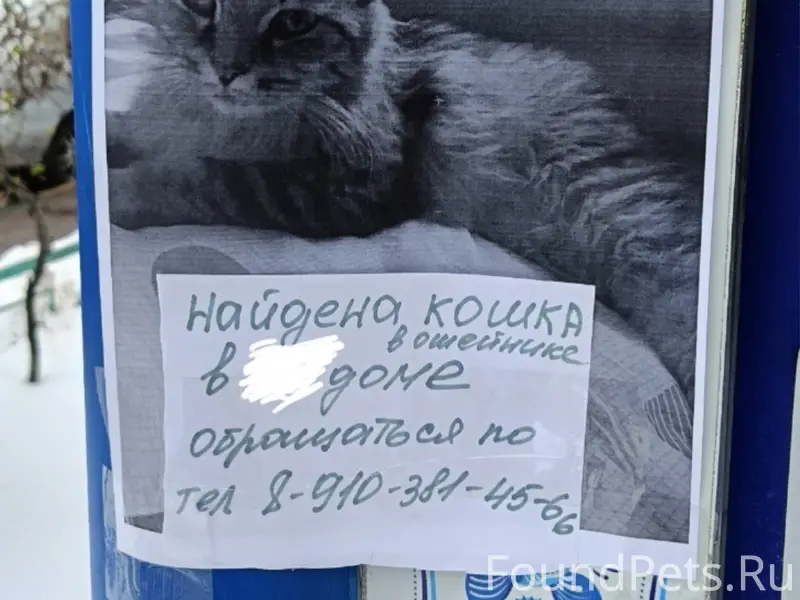 найдена кошка
в ошейнике
в доме
обращаться по
тел 8-910-381-45-66
FoundPets.Ru